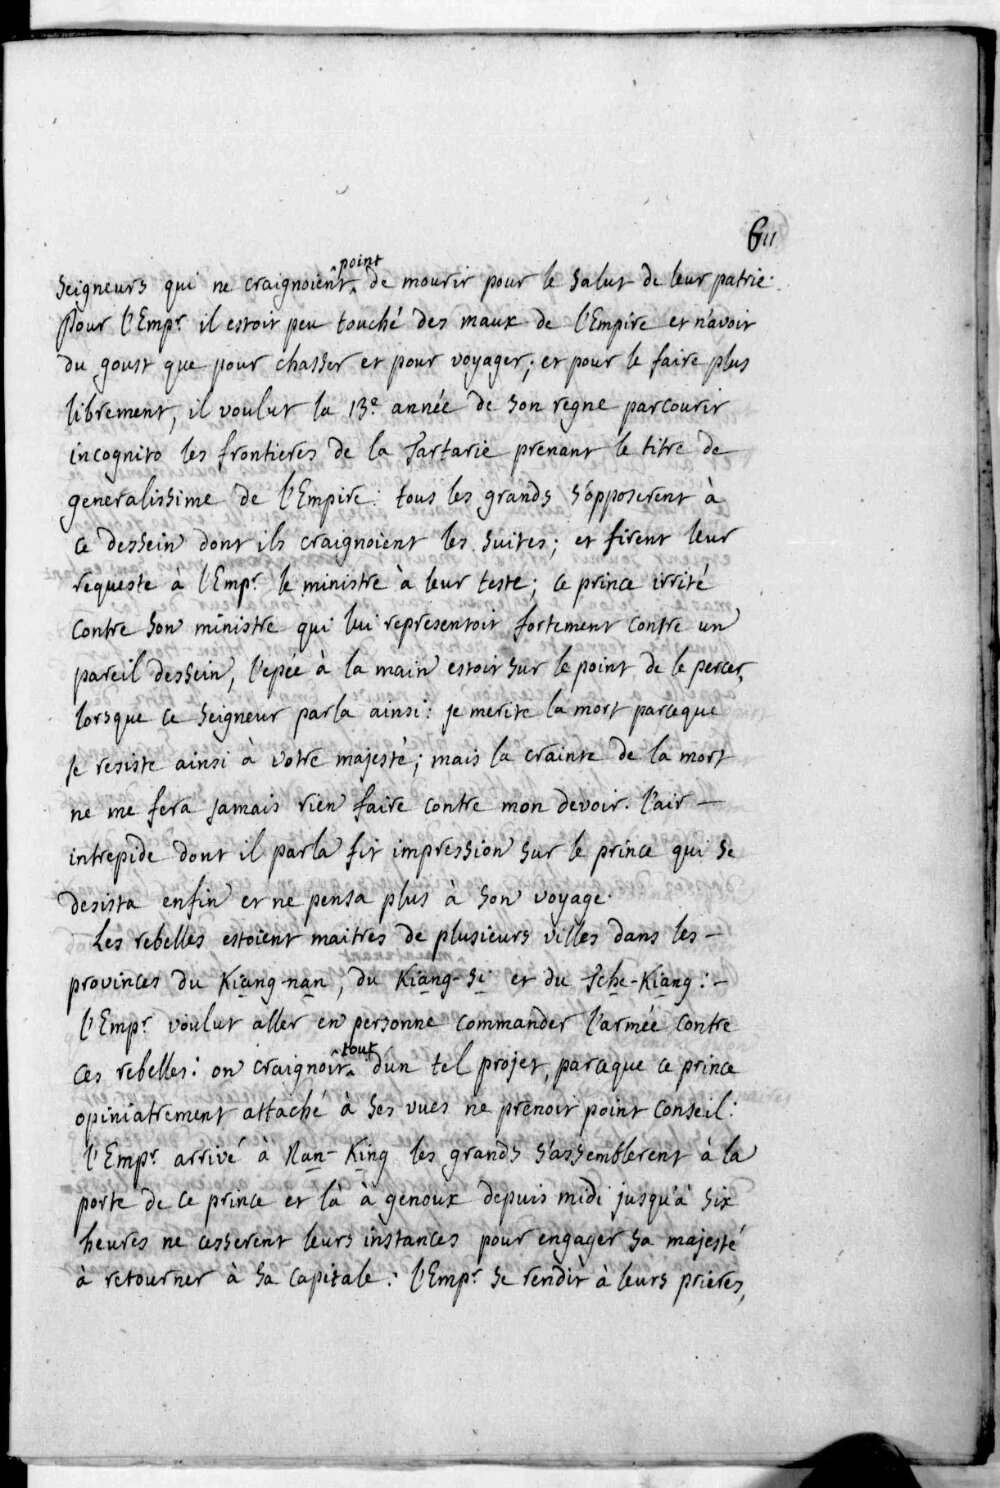 611
point
seigneurs qui ne craignoient de mourir pour le salut de leur patrie.
Pour l'Empr il estoit peu touché des maux de l'Empire et n'avoit
du goust que pour chasser et pour voyager; et pour le faire plus
librement, il voulut la 13e année de son regne parcourir
incognito les frontieres de la Tartarie prenant le titre de
generalissime de l'Empire: tous les grands s'opposerent à
ce dessein dont ils craignoient les suites; et firent leur
requeste à l'Empr le ministre à leur teste; ce prince irrité
contre son ministre qui lui representoit fortement contre un
pareil dessein, l'epée à la main estoit sur le point de le percer,
lorsque ce seigneur parla ainsi: je merite la mort parceque
je resiste ainsi à votre majesté; mais la crainte de la mort
ne me fera jamais rien faire contre mon devoir. l'air -
intrepide dont il parla fit impression sur le prince qui se
desista enfin et ne pensa plus à son voyage.
Les rebelles estoient maitres de plusieurs villes dans les -
provinces du Kiang-nan, du Kiang-si et du Tche-Kiang: -
l'Empr voulut aller en personne commander l'armée contre
tout
ces rebelles: on craignoit d'un tel projet, parceque ce prince
opiniatrement attaché à ses vues ne prenoit point conseil:
l'Empr arrivé à Nan-King les grands s'assemblerent à la
porte de ce prince et là à genoux depuis midi jusqu'à six
heures ne cesserent leurs instances pour engager sa majesté
à retourner à sa capitale: l'Empr se rendit à leurs prieres,